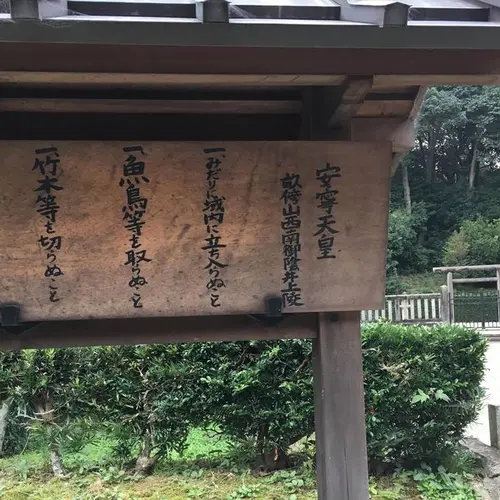 安寧天皇
畝傍山西南御陰井上陵
一、みだりに域内に立ち入らぬこと
一、魚鳥等を取らぬこと
一、竹木等を切らぬこと